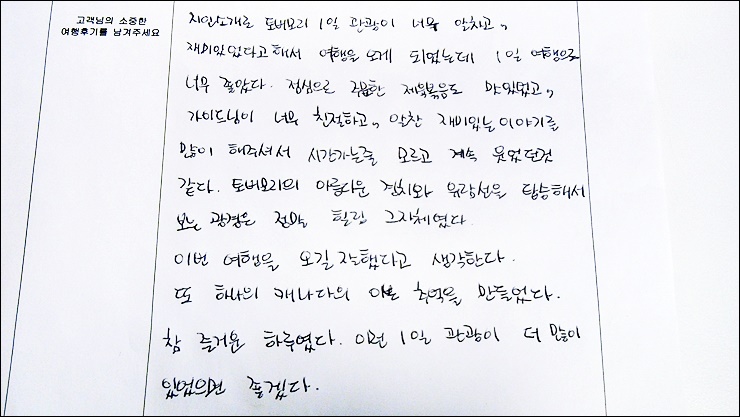 고객님의 소중한
여행후기를 남겨주세요
지인소개로 토버모리 1일 관광이 너무 알차고,,
재미있었다고해서 여행을 오게 되었는데 1일 여행으로
너무 좋았다. 점심으로 제육볶음도 맛있었고,,
가이드님이 너무 친절하고,, 알찬 재미있는 이야기를
많이 해주셔서 시간가는줄 모르고 계속 웃었던것
같다. 토버모리의 아름다운 경치와 유람선을 탑승해서
보는 광경은 정말 힐링 그자체였다.
이번 여행을 오길 잘했다고 생각한다.
또 하나의 캐나다의 추억을 만들었다.
참 즐거운 하루였다. 이런 1일 관광이 더 많이
있었으면 좋겠다.